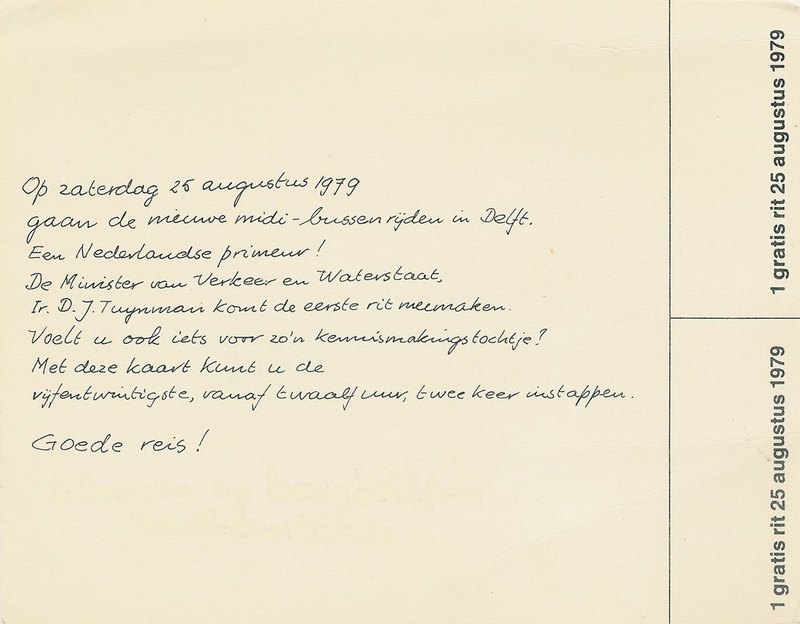 Op zaterdag 25 augustus 1979
gaan de nieuwe midi-bussen rijden in Delft.
Een Nederlandse primeur!
De Minister van Verkeer en Waterstaat,
Ir. D.J. Tuynman komt de eerste rit meemaken.
Voelt u ook iets voor zo'n kennismakingstochtje?
Met deze kaart kunt u de
vijfentwintigste, vanaf twaalf uur, twee keer instappen.
Goede reis!
1 gratis rit 25 augustus 1979
1 gratis rit 25 augustus 1979